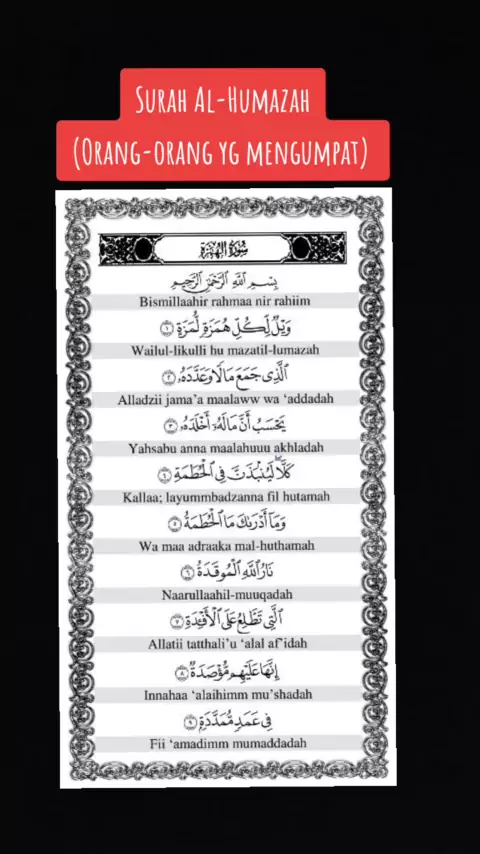 SURAH AL-HUMAZAH
(ORANG-ORANG YG MENGUMPAT)
سُورَةُ الْهُمَزَةِ
بِسْمِ اللَّهِ الرَّحْمَٰنِ الرَّحِيمِ
Bismillaahir rahmaa nir rahiim
وَيْلٌ لِّكُلِّ هُمَزَةٍ لُّمَزَةٍ ﴿١﴾
Wailul-likulli hu mazatil-lumazah
الَّذِي جَمَعَ مَالًا وَعَدَّدَهُ ﴿٢﴾
Alladzii jama’a maalaww wa ‘addadah
يَحْسَبُ أَنَّ مَالَهُ أَخْلَدَهُ ﴿٣﴾
Yahsabu anna maalahuuu akhladah
كَلَّا لَيُنْبَذَنَّ فِي الْحُطَمَةِ ﴿٤﴾
Kallaa; layummbadzanna fil hutamah
وَمَا أَدْرَىٰكَ مَا الْحُطَمَةُ ﴿٥﴾
Wa maa adraaka mal-huthamah
نَارُ اللَّهِ الْمُوقَدَةُ ﴿٦﴾
Naarullaahil-muuqadah
الَّتِي تَطَّلِعُ عَلَى الْأَفْئِدَةِ ﴿٧﴾
Allatii tatthali’u ‘alal af’idah
إِنَّهَا عَلَيْهِمْ مُّؤْصَدَةٌ ﴿٨﴾
Innahaa ‘alaihimm mu’shadah
فِي عَمَدٍ مُّمَدَّدَةٍ ﴿٩﴾
Fii ‘amadimm mumaddadah